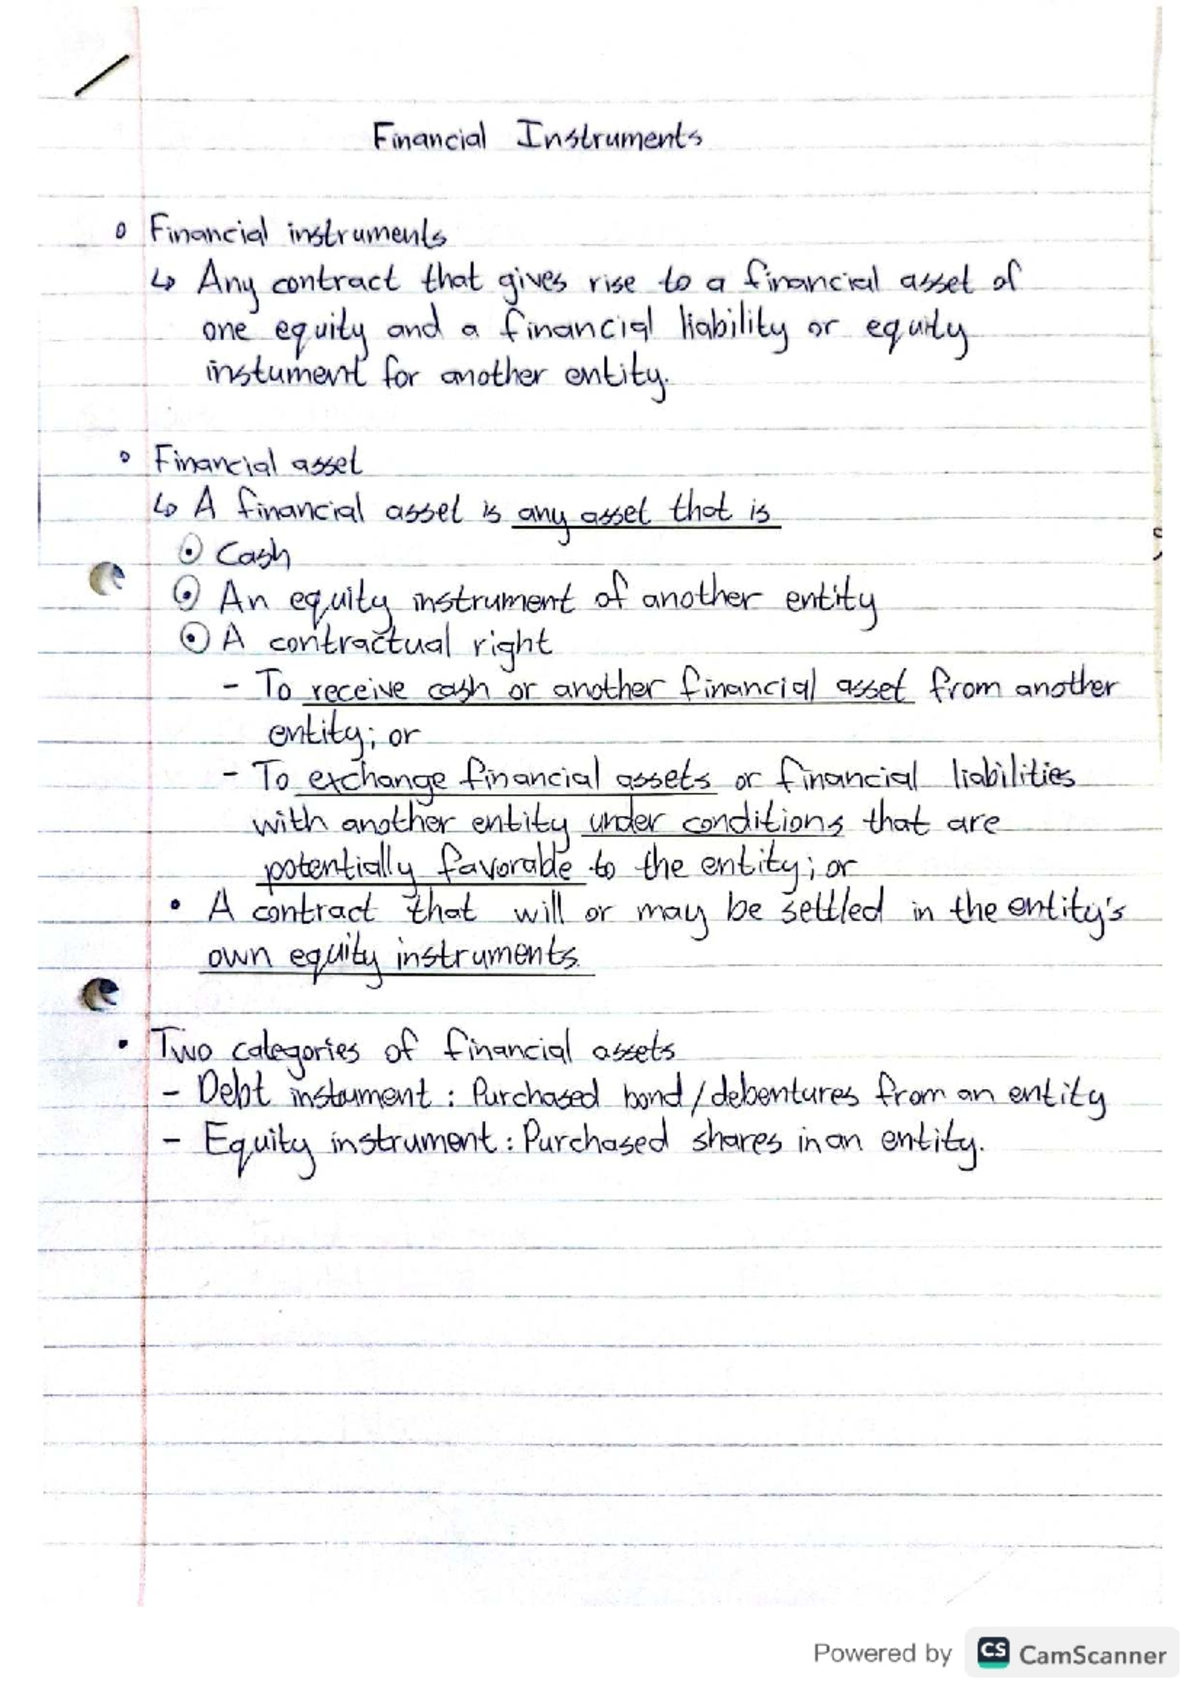 Financial Instruments
Financial instruments
↳ Any contract that gives rise to a financial asset of
one equity and a financial liability or equity
instument for another entity.
Financial asset
↳ A financial asset is any asset that is
Cash
An equity instrument of another entity
A contractual right
- To receive cash or another financial asset from another
entity; or
- To exchange financial assets or financial liabilities
with another entity under conditions that are
potentially favorable to the entity; or
• A contract that will or may be settled in the entity's
own equity instruments.
• Two categories of financial assets
- Debt instument : Purchased bond/debentures from an entity
- Equity instrument : Purchased shares in an entity.
Powered by CS CamScanner